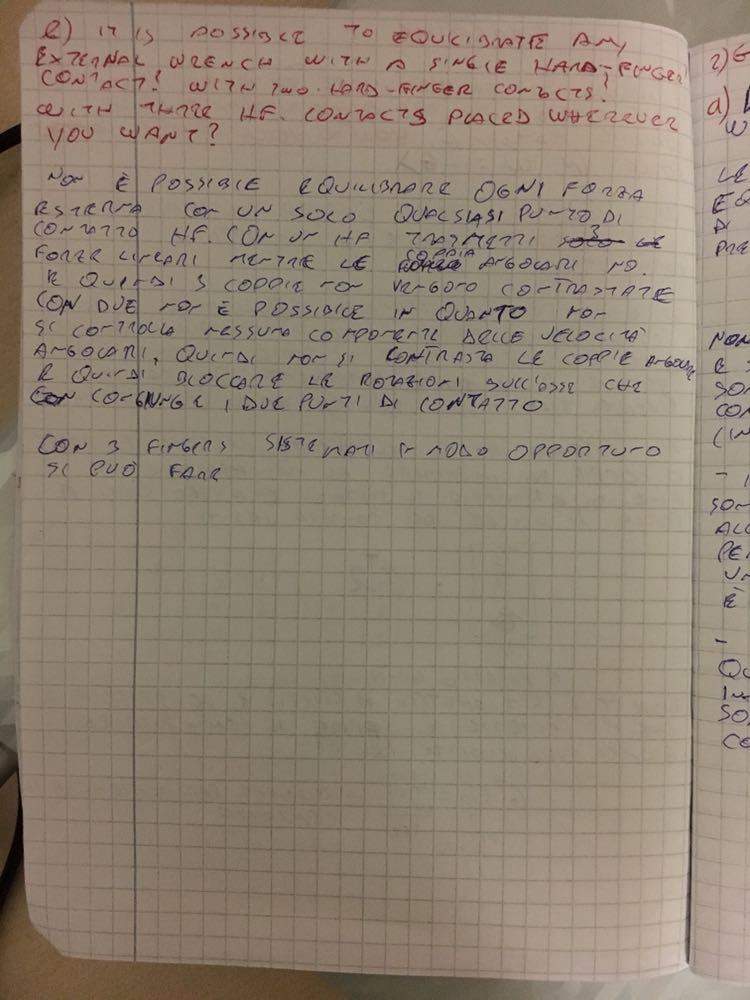 e) IT IS POSSIBLE TO EQUILIBRATE ANY
EXTERNAL WRENCH WITH A SINGLE HARD-FINGER
CONTACT? WITH TWO HARD-FINGER CONTACTS?
WITH THREE HF. CONTACTS PLACED WHEREVER
YOU WANT?
NON È POSSIBLE EQUILIBRARE OGNI FORZA
ESTERNA CON UN SOLO QUALSIASI PUNTO DI
CONTATTO HF. CON UN HF TRASMETTI 3
FORZE LINEARI MENTRE LE COPPIA ANGOLARI NO.
E QUINDI 3 COPPIE NON VENGONO CONTRASTATE
CON DUE NON È POSSIBILE IN QUANTO NON
SI CONTROLLA NESSUNA COMPONENTE DELLE VELOCITÀ
ANGOLARI, QUINDI NON SI CONTRASTA LE COPPIE
E QUINDI BLOCCARE LE ROTAZIONI SULL'ASSE CHE
CONGIUNGE I DUE PUNTI DI CONTATTO
CON 3 FINGERS SISTEMATI IN MODO OPPORTUNO
SI PUÒ FARE
2)
a)
W
LE
EQ
DI
PRE
NON
E
SON
CON
(IN
-
SON
ALL
PER
UN
È
-
QU
IN
SO
CO